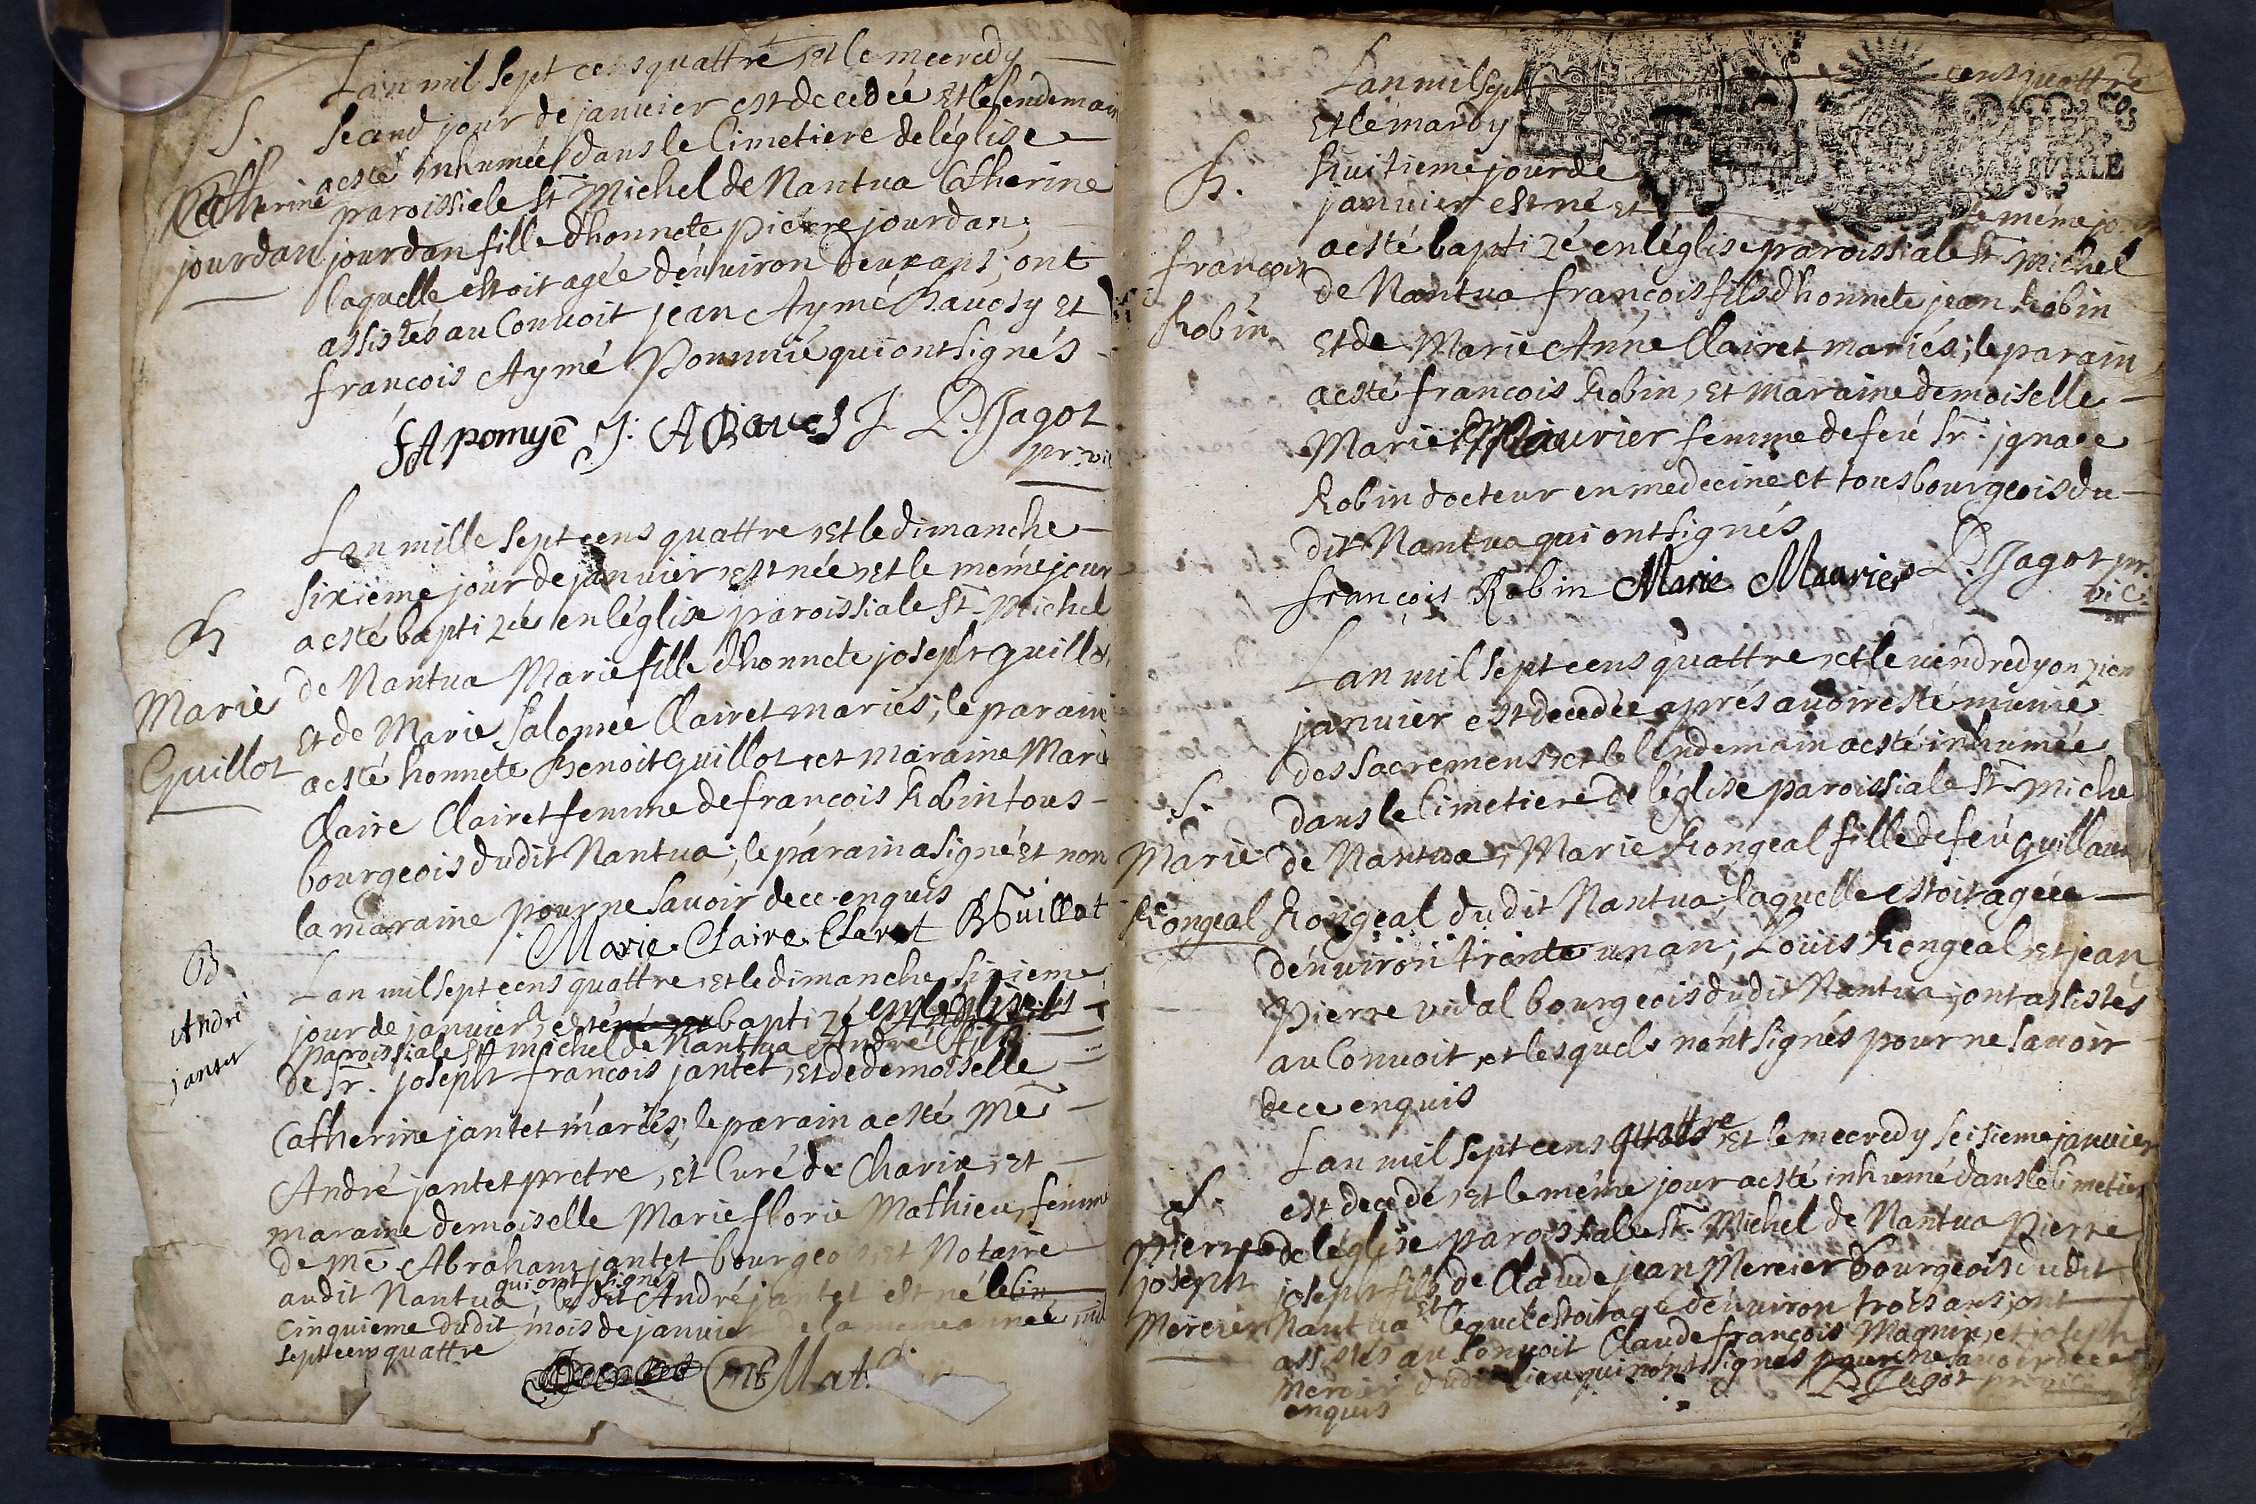 Lan mil sept cens quattre, et le mecredy
S. second jour de janvier est decedée et le lendemain
Catherine a esté inhumée dans le Cimetiere de léglise
paroissiale St Michel de Nantua Catherine
jourdan jourdan fille dhonnete pierre jourdan,
laquelle estoit agée dénviron deux ans; ont
assistés au Convoit jean Aymé Bavosy et
françois Aymé Pommié qui ont signés
FApomyé J. A Bavosy P. Jagot
pr. vic
Lan mille sept cens quattre, et le dimanche
sixiéme jour de janvier, est née et le méme jour
B a esté baptizée en léglise paroissiale St Michel
Marie de Nantua Marie fille dhonnete joseph guillot
et de Marie Salomée Clairet mariés; le parain
Guillot a esté honnete benoit guillot, et maraine Marie
Claire Clairet femme de françois Robin tous
bourgeois dudit Nantua; le párain a signé et non
la maraine pour ne savoir de ce enquis
Marie Claire Cleret B Guillot
B Lan mil sept cens quattre, et le dimanche sixieme
André jour de janvier, a esté baptizé en léglise
paroissiale St michel de Nantua André fils
jantet de Sr. joseph françois jantet, et de demoiselle
Catherine jantet mariés; le parain a esté Me
André jantet pretre, et Curé de Charix, et
maraine demoiselle Marie florie Mathieu, femme
de Me Abraham jantet bourgeois et Notaire
qui ont signé
audit Nantua, ledit André jantet est né le
cinquieme dudit mois de janvier de la méme année mil
sept cens quattre
Lan mil sept cens quattre
PAPIER
VILLE
et le mardy
B. huitieme jour de
janvier est né et le méme jo
françois a esté baptizé en léglise paroissiale St Michel
de Nantua françois fils dhonnete jean Robin
Robin et de Marie Anne Clairet mariés; le parain
a esté françois Robin, et maraine demoiselle
Marie Maurier femme de feu Sr. jgnace
Robin docteur en medecine et tous bourgeois du
dit Nantua qui ont signés
françois Robin Marie Maurier P. Jagot pr.
vic.
Lan mil sept cens quattre, et le vendredy onzieme
janvier est decedée aprés avoir esté munie
des sacremens, et le lendemain a esté inhumée
S. dans le Cimetiere de léglise paroissiale St Michel
Marie de Nantua, Marie Rongeal fille de feu guillaume
Rongeal Rongeal dudit Nantua, laquelle estoit agée
dénviron trente un an; Louis Rongeal et jean
Pierre vidal bourgeois dudit Nantua, ont assistés
au Convoit, et lesquels nónt signés pour ne savoir
de ce enquis
Lan mil sept cens quattre, et le mecredy seisieme janvier
S. est decedé, et le méme jour a esté inhumé dans le Cimetiere
pierre de léglise paroissiale St Michel de Nantua Pierre
joseph joseph fils de Claude jean Mercier bourgeois dudit
Mercier Nantua et lequel estoit agé dénviron trois ans; ont
assistés au Convoit Claude françois Magnin, et joseph
Mercier dudit lieu qui nónt signés pour ne savoir de ce
enquis P. Jagot pr. vic.